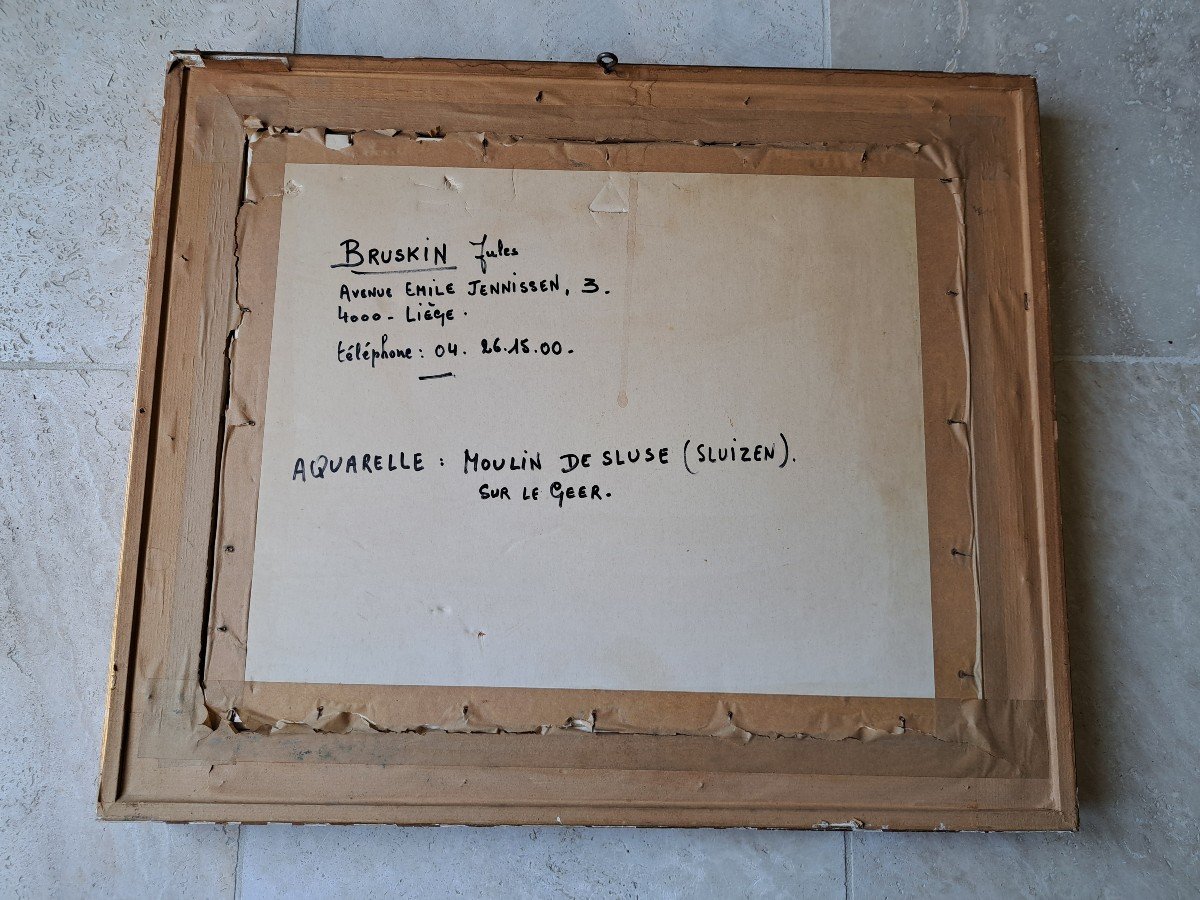 BRUSKIN Jules
AVENUE EMILE JENNISSEN, 3.
4000 - LIÈGE.
téléphone : 04. 26.15.00.
AQUARELLE : MOULIN DE SLUSE (SLUIZEN).
SUR LE GEER.